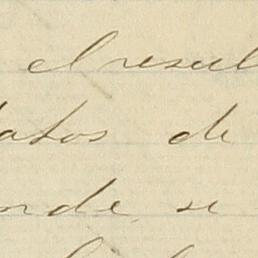 el resul
datos de
onde, se